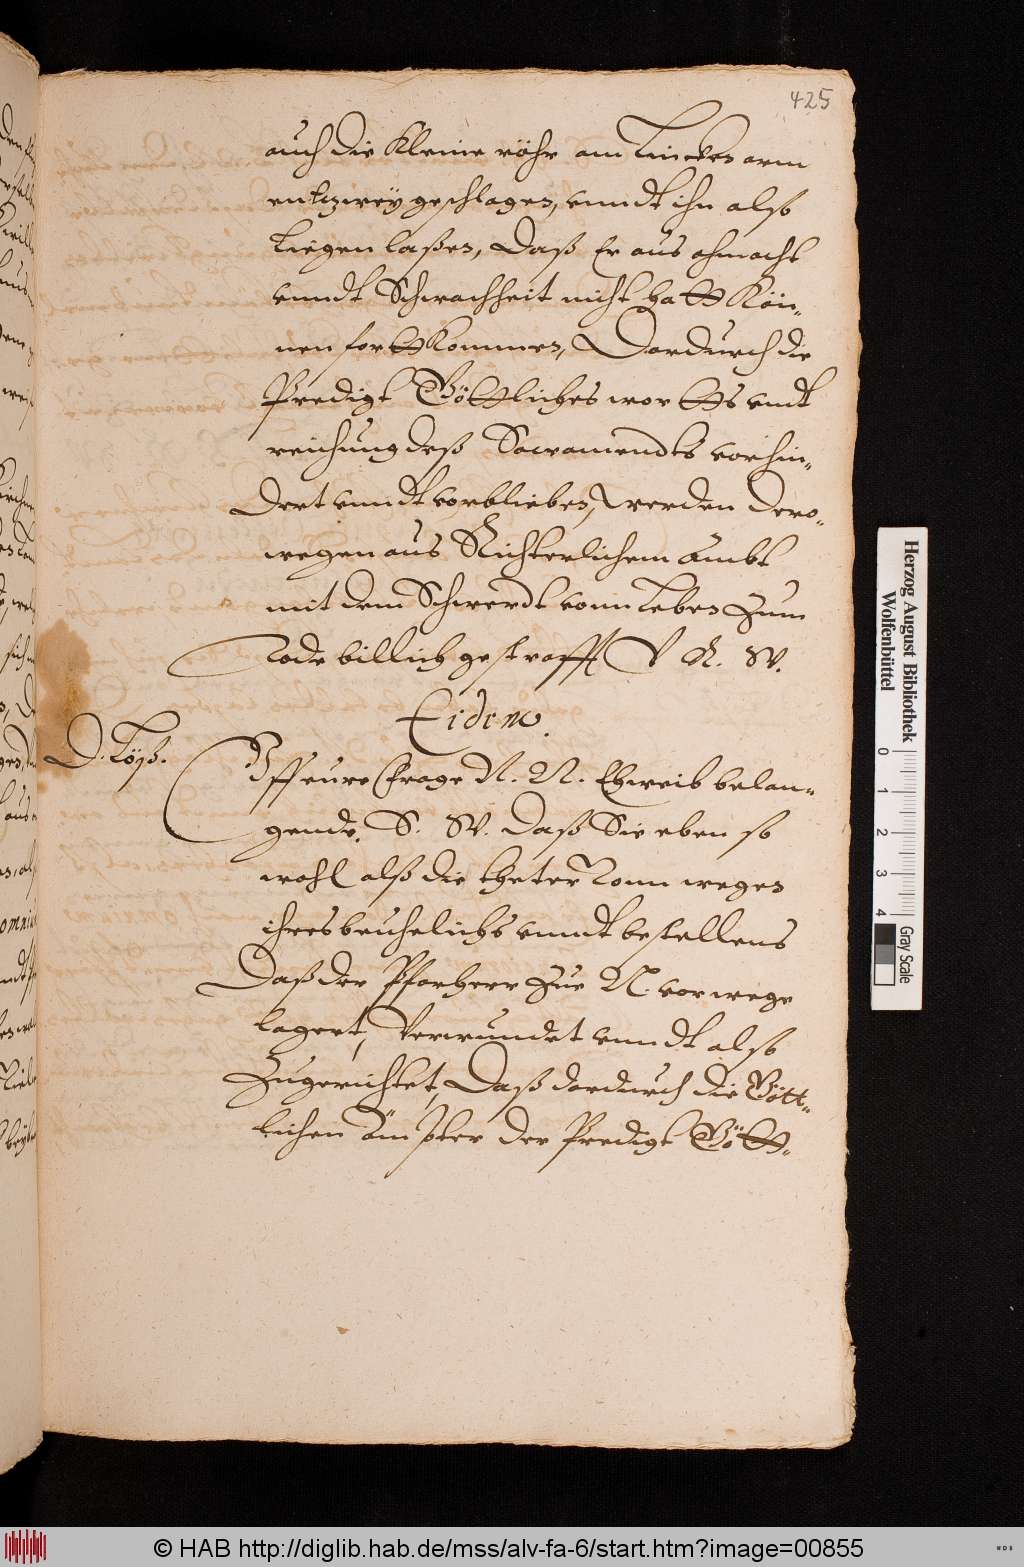 425
auch die Kleine röhr am Lincken arm
entzwey geschlagen, vnndt ihn also
Liegen laßen, Daß Er aus ohmacht
vnndt Schwachheit nicht hatt Kön-
nen fortt Kommen, Dardurch die
Predigt Göttliches wortts vndt
reichung deß Sacramendts vorhin-
dert vnndt vorblieben, werden dero-
wegen aus Richterlichem Ambt
mit dem Schwerdt vom Leben Zum
Tode billich gestrafft V. R. W.
Eidem.
D. Löß.
Vff eure Frage N. N. Ehweib belan-
gende. S. W. Daß Sie eben so
wohl alß die theter wegen
ihres beuhelichs vnndt bestellens
Daß der Pfarherr Zue N. vorwege
lagert, Verwundet vnndt also
Zugerichtet, Daß dardurch die Gött-
lichen Ämpter der Predigt Gött-
Herzog August Bibliothek
Wolfenbüttel
0 1 2 3 4
Gray Scale
© HAB http://diglib.hab.de/mss/alv-fa-6/start.htm?image=00855